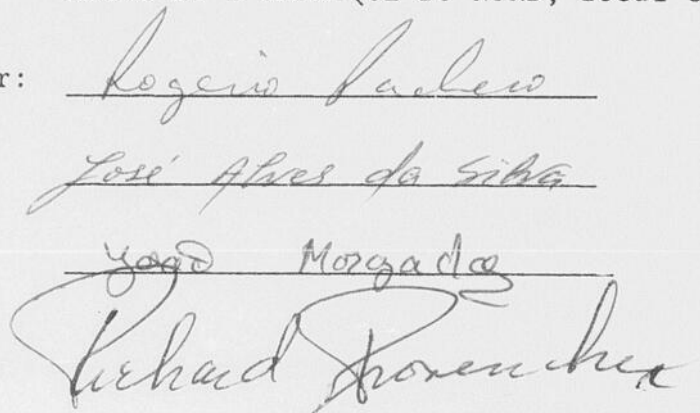 r: Rogerio Pacheco
José Alves da Silva
João Morgado
Richard Provencher